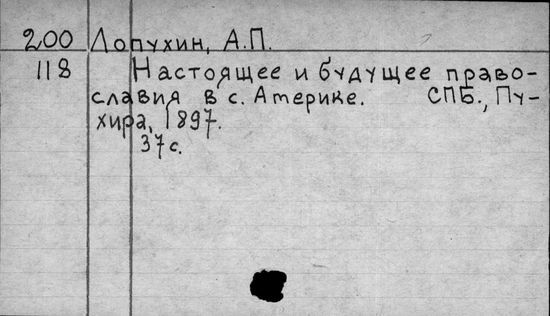 200 Лопухин, А.П.
118 Настоящее и будущее право-
славия в с. Америке. СПБ., Пу-
хира, 1897.
37 с.